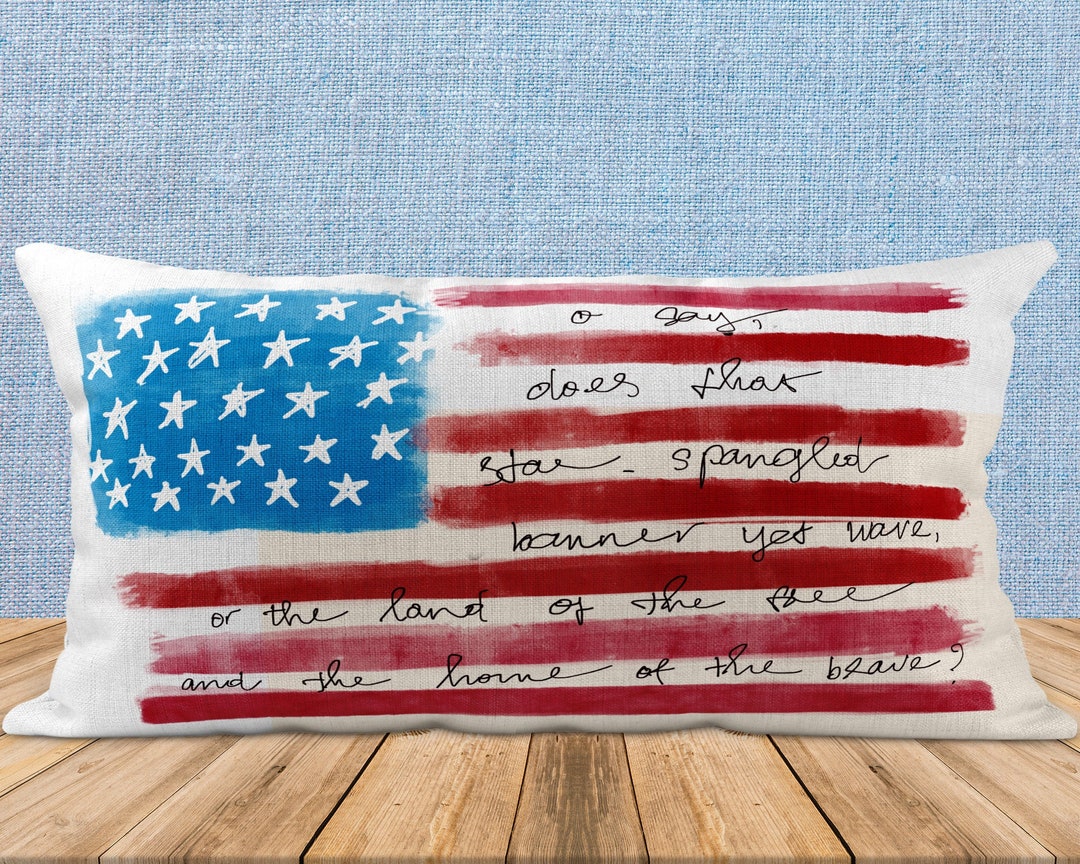 o say,
does that
star-spangled
banner yet wave,
or the land of the free
and the home of the brave?